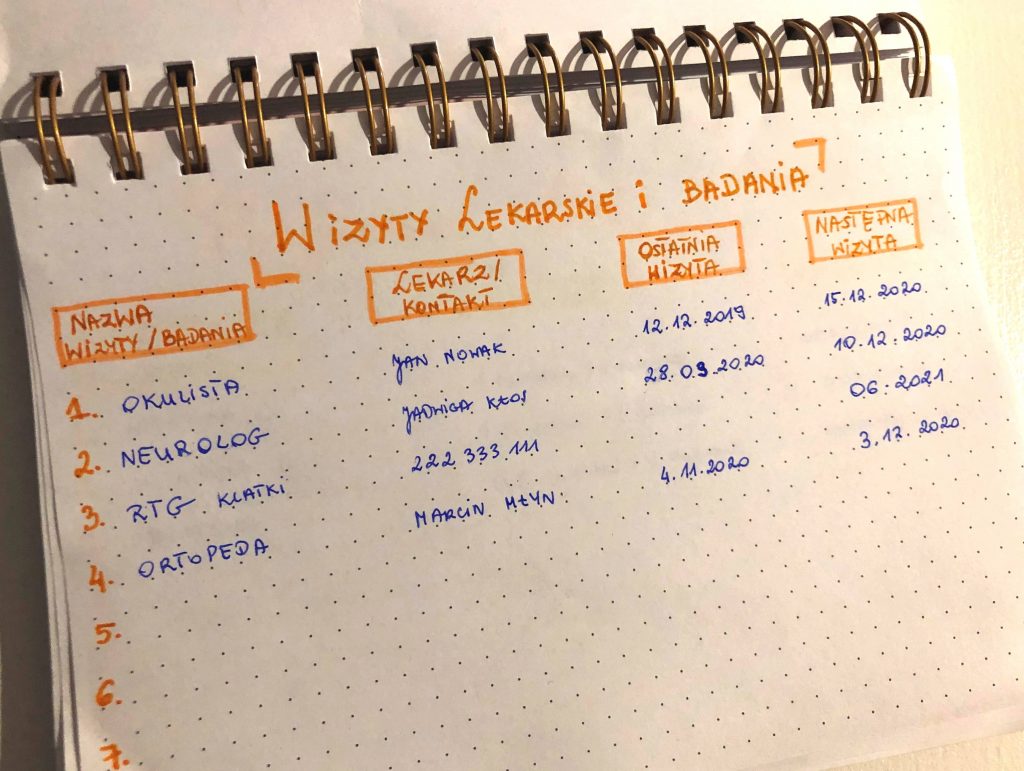 WIZYTY LEKARSKIE i BADANIA
NAZWA WIZYTY / BADANIA LEKARZ / KONTAKT OSTATNIA WIZYTA NASTĘPNA WIZYTA
1. OKULISTA JAN NOWAK 12.12.2019 15.12.2020
2. NEUROLOG JADWIGA KŁOS 28.09.2020 10.12.2020
3. RTG KLATKI 222 333 111 06.2021
4. ORTOPEDA MARCIN MŁYN 4.11.2020 3.12.2020
5.
6.
7.